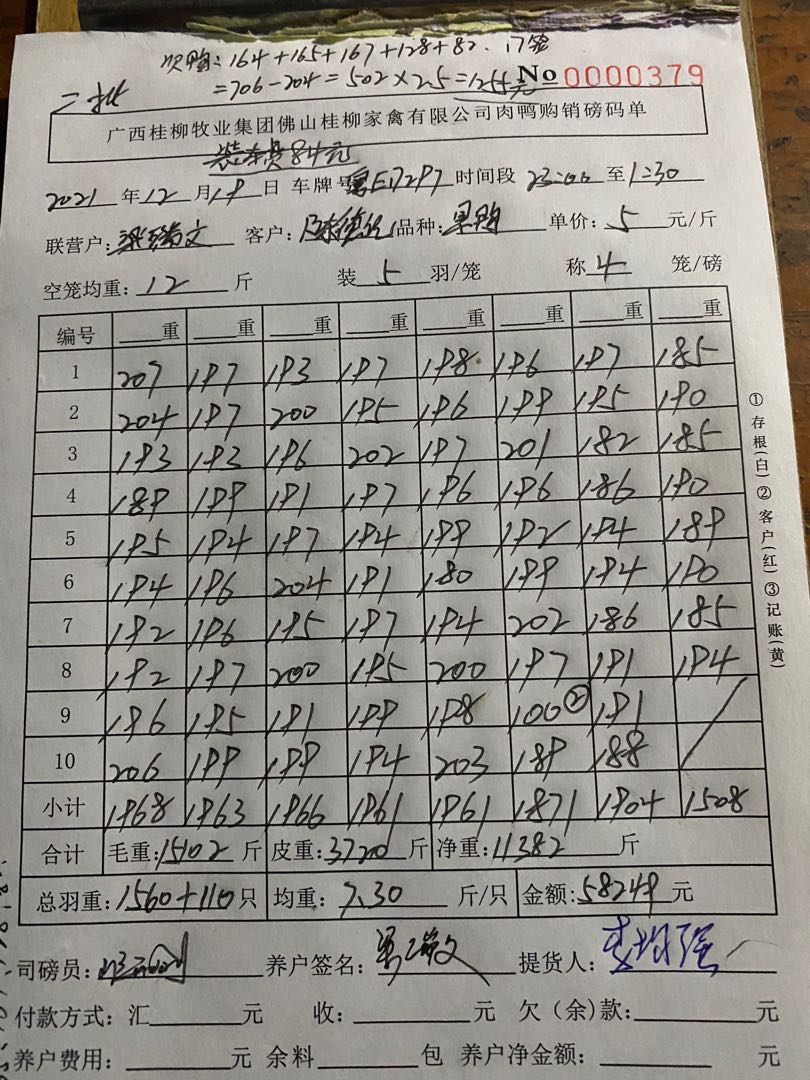 次鸭: 164+165+167+128+82. 17笼
=706-204=502×2.5=1255元
二批
No 0000379
广西桂柳牧业集团佛山桂柳家禽有限公司肉鸭购销磅码单
装车费84元
2021 年 12 月 19 日 车牌号 E17297 时间段 23:00 至 1:30
联营户: 客户: 品种: 单价: 5 元/斤
空笼均重: 12 斤 装 5 羽/笼 称 4 笼/磅
编号 重 重 重 重 重 重 重 重
1 207 197 193 197 198 196 197 185
2 204 197 200 195 196 199 195 190
3 193 193 196 202 197 201 182 185
4 189 199 191 197 196 196 186 190
5 195 194 197 194 199 192 194 189
6 194 196 204 191 180 199 194 190
7 192 196 195 197 194 202 186 185
8 192 197 200 195 200 197 191 194
9 196 195 191 199 198 100② 191 /
10 206 199 199 194 203 189 188
小计 1968 1963 1966 1961 1961 1871 1904 1508
合计 毛重: 15102 斤 皮重: 3720 斤 净重: 11382 斤
总羽重: 1560+110 只 均重: 7.30 斤/只 金额: 58249 元
司磅员: 养户签名: 提货人:
付款方式: 汇 元 收: 元 欠(余)款: 元
养户费用: 元 余料 包 养户净金额: 元
①存根(白)②客户(红)③记账(黄)